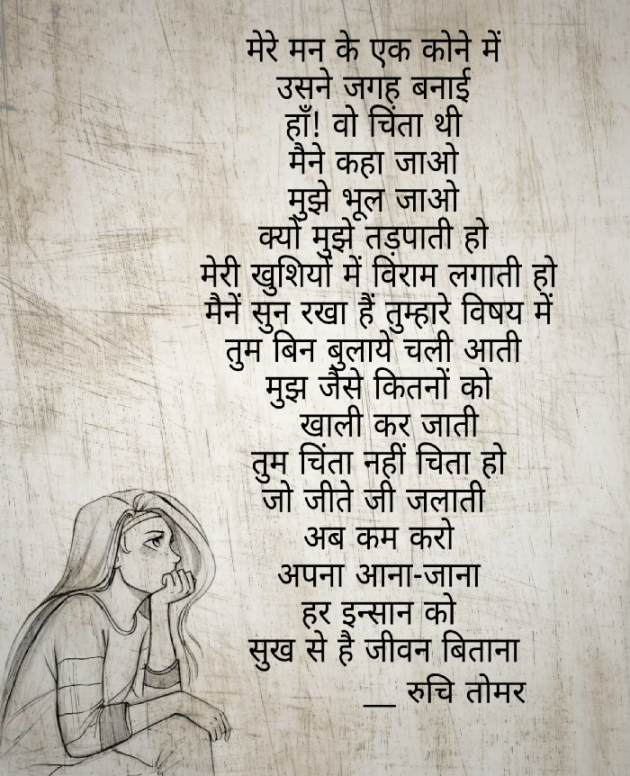 मेरे मन के एक कोने में
उसने जगह बनाई
हाँ! वो चिंता थी
मैने कहा जाओ
मुझे भूल जाओ
क्यों मुझे तड़पाती हो
मेरी खुशियों में विराम लगाती हो
मैनें सुन रखा हैं तुम्हारे विषय में
तुम बिन बुलाये चली आती
मुझ जैसे कितनों को
खाली कर जाती
तुम चिंता नहीं चिता हो
जो जीते जी जलाती
अब कम करो
अपना आना-जाना
हर इन्सान को
सुख से है जीवन बिताना
__ रुचि तोमर